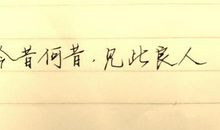 今昔何昔，见此良人